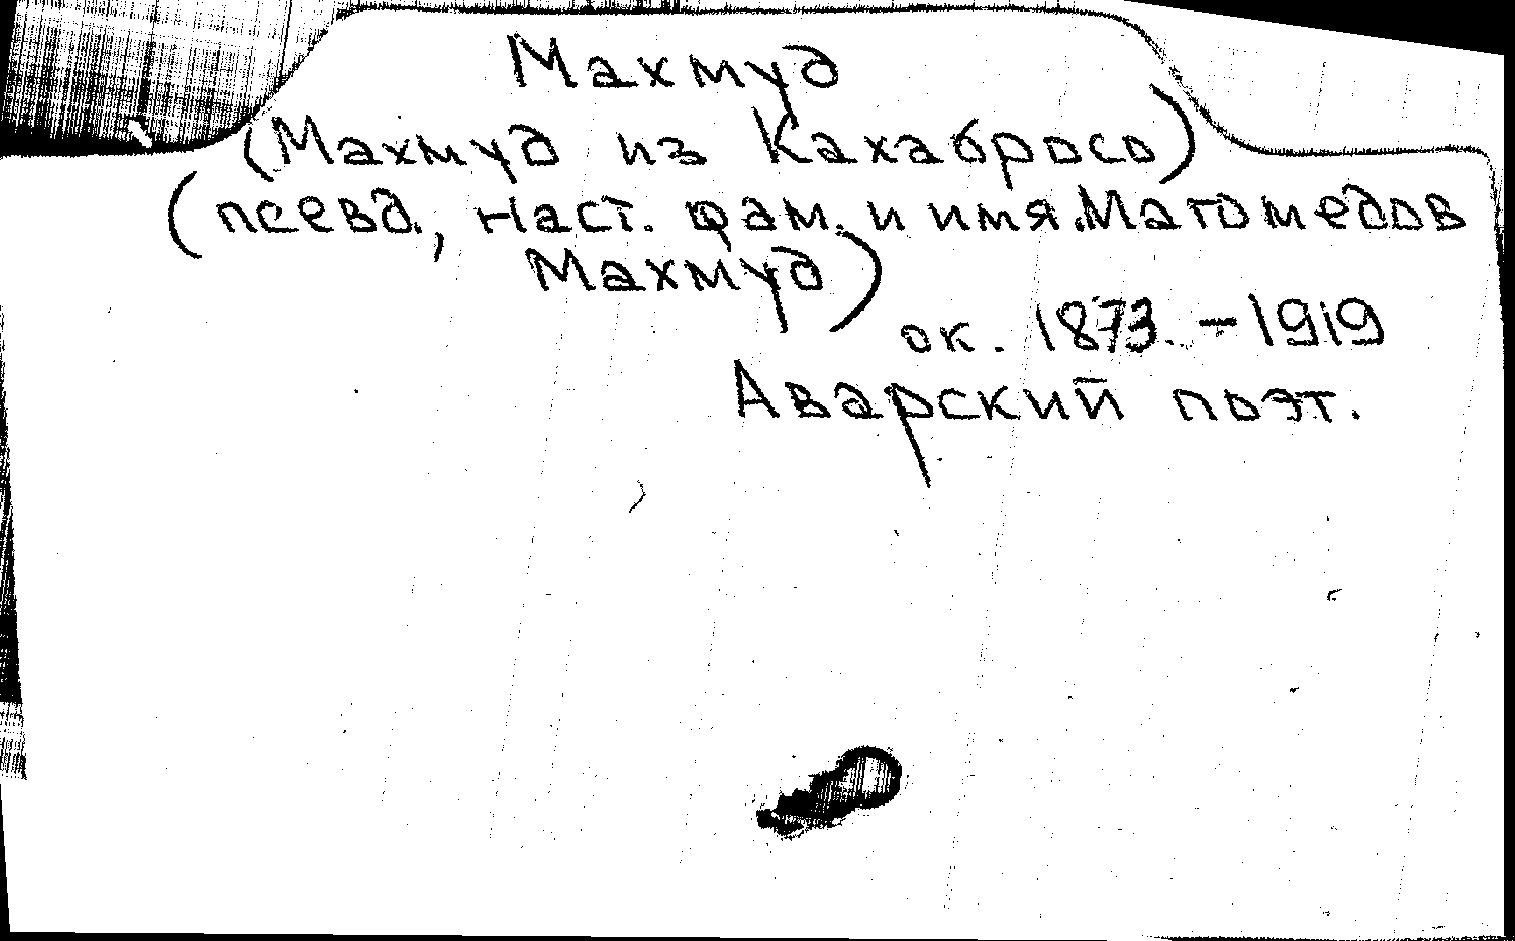 Махмуд
(Махмуд из Кахабросо)
(псевд., наст. фам. и имя.Магомедов
Махмуд)
ок. 1873. – 1919
Аварский поэт.